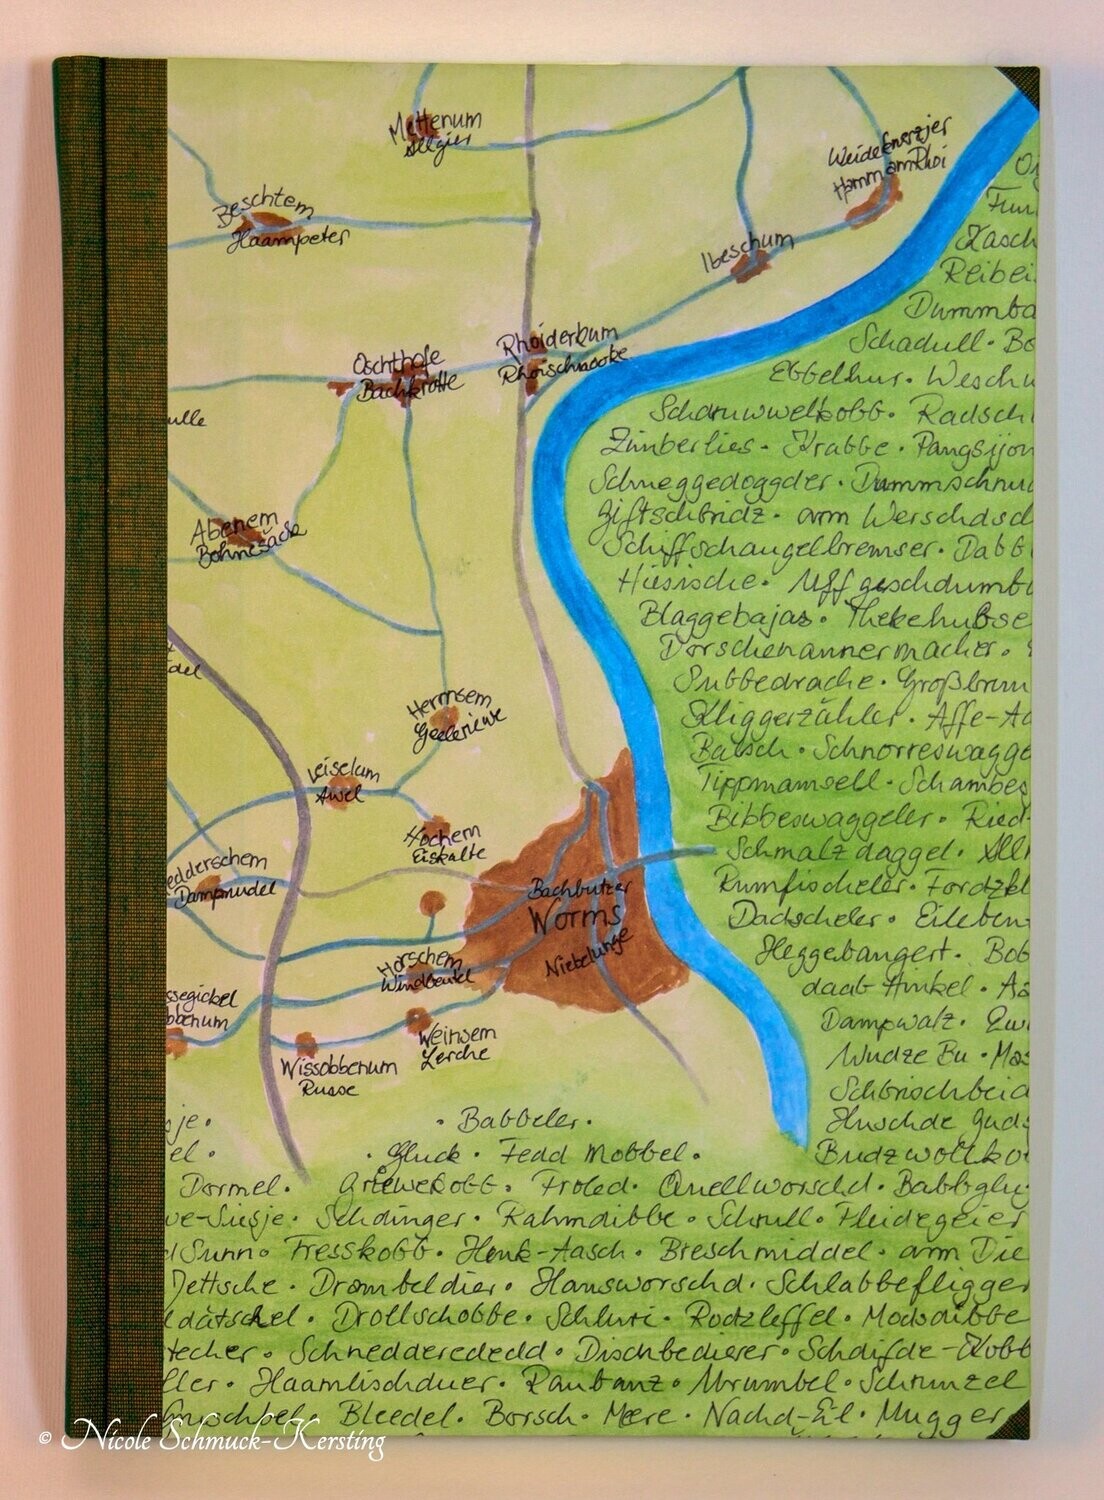 Mettenum
Allgier
Weideknerzjer
Hamm am Rhoi
Beschtem
Haampeter
Ibeschum
Rhoiderkum
Rhoischnooke
Oschthofe
Bachkrotte
ulle
Abenem
Bohnesäck
del
Hermsem
Geeleriewe
Leiselum
Awel
Hochem
Eiskalte
edderschem
Dampnudel
Bachbutzer
Worms
Niebelunge
Horschem
Windbeutel
ssegickel
bbenum
Weinsem
Lerche
Wissobbenum
Russe
Fun
Kasch
Reibei
Dummba
Schadull · Bo
Ebbelhur · Weschw
Scharuwwelkobb · Radsch
Zimberlies · Krabbe · Pangsijon
Schneggedoggder · Dammschnu
Giftschbridz · arm Werschdsch
Schiffschaugelbremser · Dabb
Hiesische · Uffgeschdumb
Blaggebajas · Thekehubse
Dorschenannermacher ·
Subbedrache · Großbrun
Kliggerzähler · Affe-Ac
Babsch · Schnorreswagge
Tippmamsell · Schambes
Bibbeswaggeler · Ried-
Schmalzdaggel · All
Rumfischeler · Fordzkl
Dadscheler · Eileben
Heggebangert · Bob
daab Hinkel · Aa
Dampwalz · Ew
Wudze Bu · Mos
Schbrischbeid
Huschde Guds
Budzwollko
je · · Babbeler ·
el · · Gluck · Fedd Mobbel ·
Dormel · Griewekobb · Froled · Quellworschd · Babbglu
we-Siesje · Schdinger · Rahmdibbe · Schrull · Heidegeier
d Sunn · Fresskobb · Henk-Aasch · Breschmiddel · arm Die
Jettsche · Drombeldier · Hansworschd · Schlabbefligger
ldätschel · Drollschobbe · Schluri · Rodzleffel · Modsdibbe
techer · Schnedderededd · Dischbedierer · Schdifde-Kobb
ller · Haamlischduer · Raubauz · Mrumbel · Schrunzel
Bleedel · Borsch · Meere · Nachd-Eil · Mugger
© Nicole Schmuck-Kersting